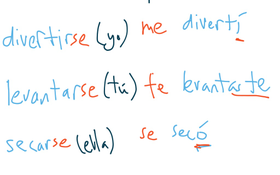 divertirse (yo) me divertí
levantarse (tú) te levantaste
secarse (ella) se secó